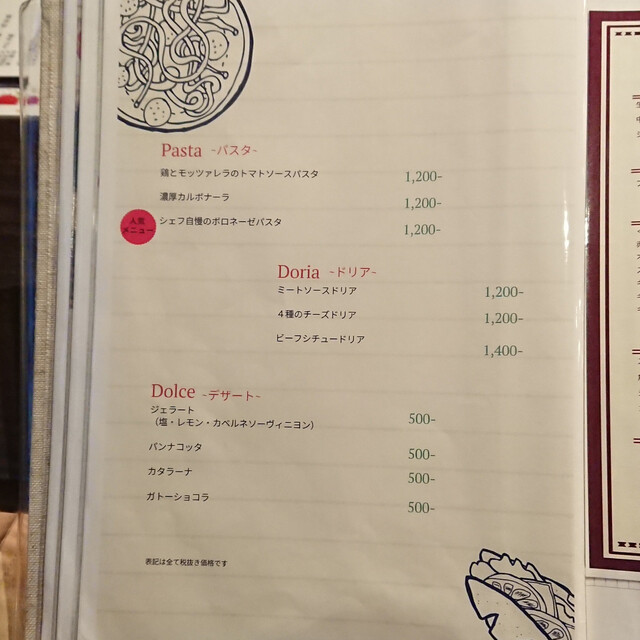 Pasta ~パスタ~
鶏とモッツァレラのトマトソースパスタ 1,200-
濃厚カルボナーラ 1,200-
人気
メニュー
シェフ自慢のボロネーゼパスタ 1,200-
Doria ~ドリア~
ミートソースドリア 1,200-
4種のチーズドリア 1,200-
ビーフシチュードリア 1,400-
Dolce ~デザート~
ジェラート
（塩・レモン・カベルネソーヴィニヨン） 500-
パンナコッタ 500-
カタラーナ 500-
ガトーショコラ 500-
表記は全て税抜き価格です